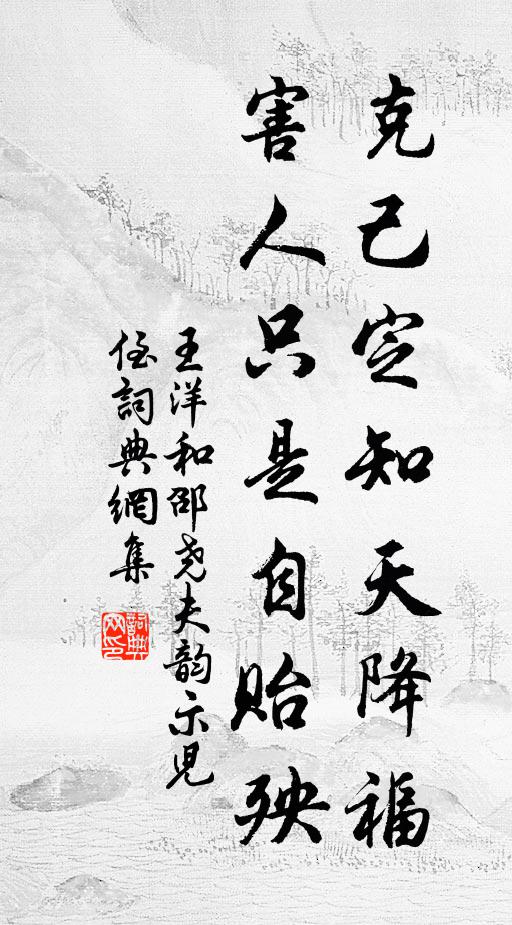 克己定知天降福
害人只是自貽殃
王洋和邵尧夫韵示兒
侄詞典網集
詞典
网印